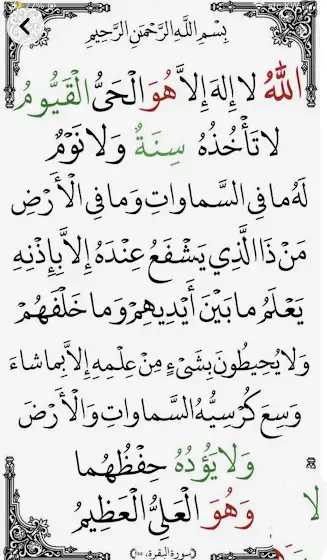 بِسْمِ اللَّهِ الرَّحْمَنِ الرَّحِيمِ
اللَّهُ لَا إِلَهَ إِلَّا هُوَ الْحَيُّ الْقَيُّومُ
لَا تَأْخُذُهُ سِنَةٌ وَلَا نَوْمٌ
لَهُ مَا فِي السَّمَاوَاتِ وَمَا فِي الْأَرْضِ
مَنْ ذَا الَّذِي يَشْفَعُ عِنْدَهُ إِلَّا بِإِذْنِهِ
يَعْلَمُ مَا بَيْنَ أَيْدِيهِمْ وَمَا خَلْفَهُمْ
وَلَا يُحِيطُونَ بِشَيْءٍ مِنْ عِلْمِهِ إِلَّا بِمَا شَاءَ
وَسِعَ كُرْسِيُّهُ السَّمَاوَاتِ وَالْأَرْضَ
وَلَا يَؤُدُهُ حِفْظُهُمَا
وَهُوَ الْعَلِيُّ الْعَظِيمُ
لا
سورة البقرة، ٢٥٥